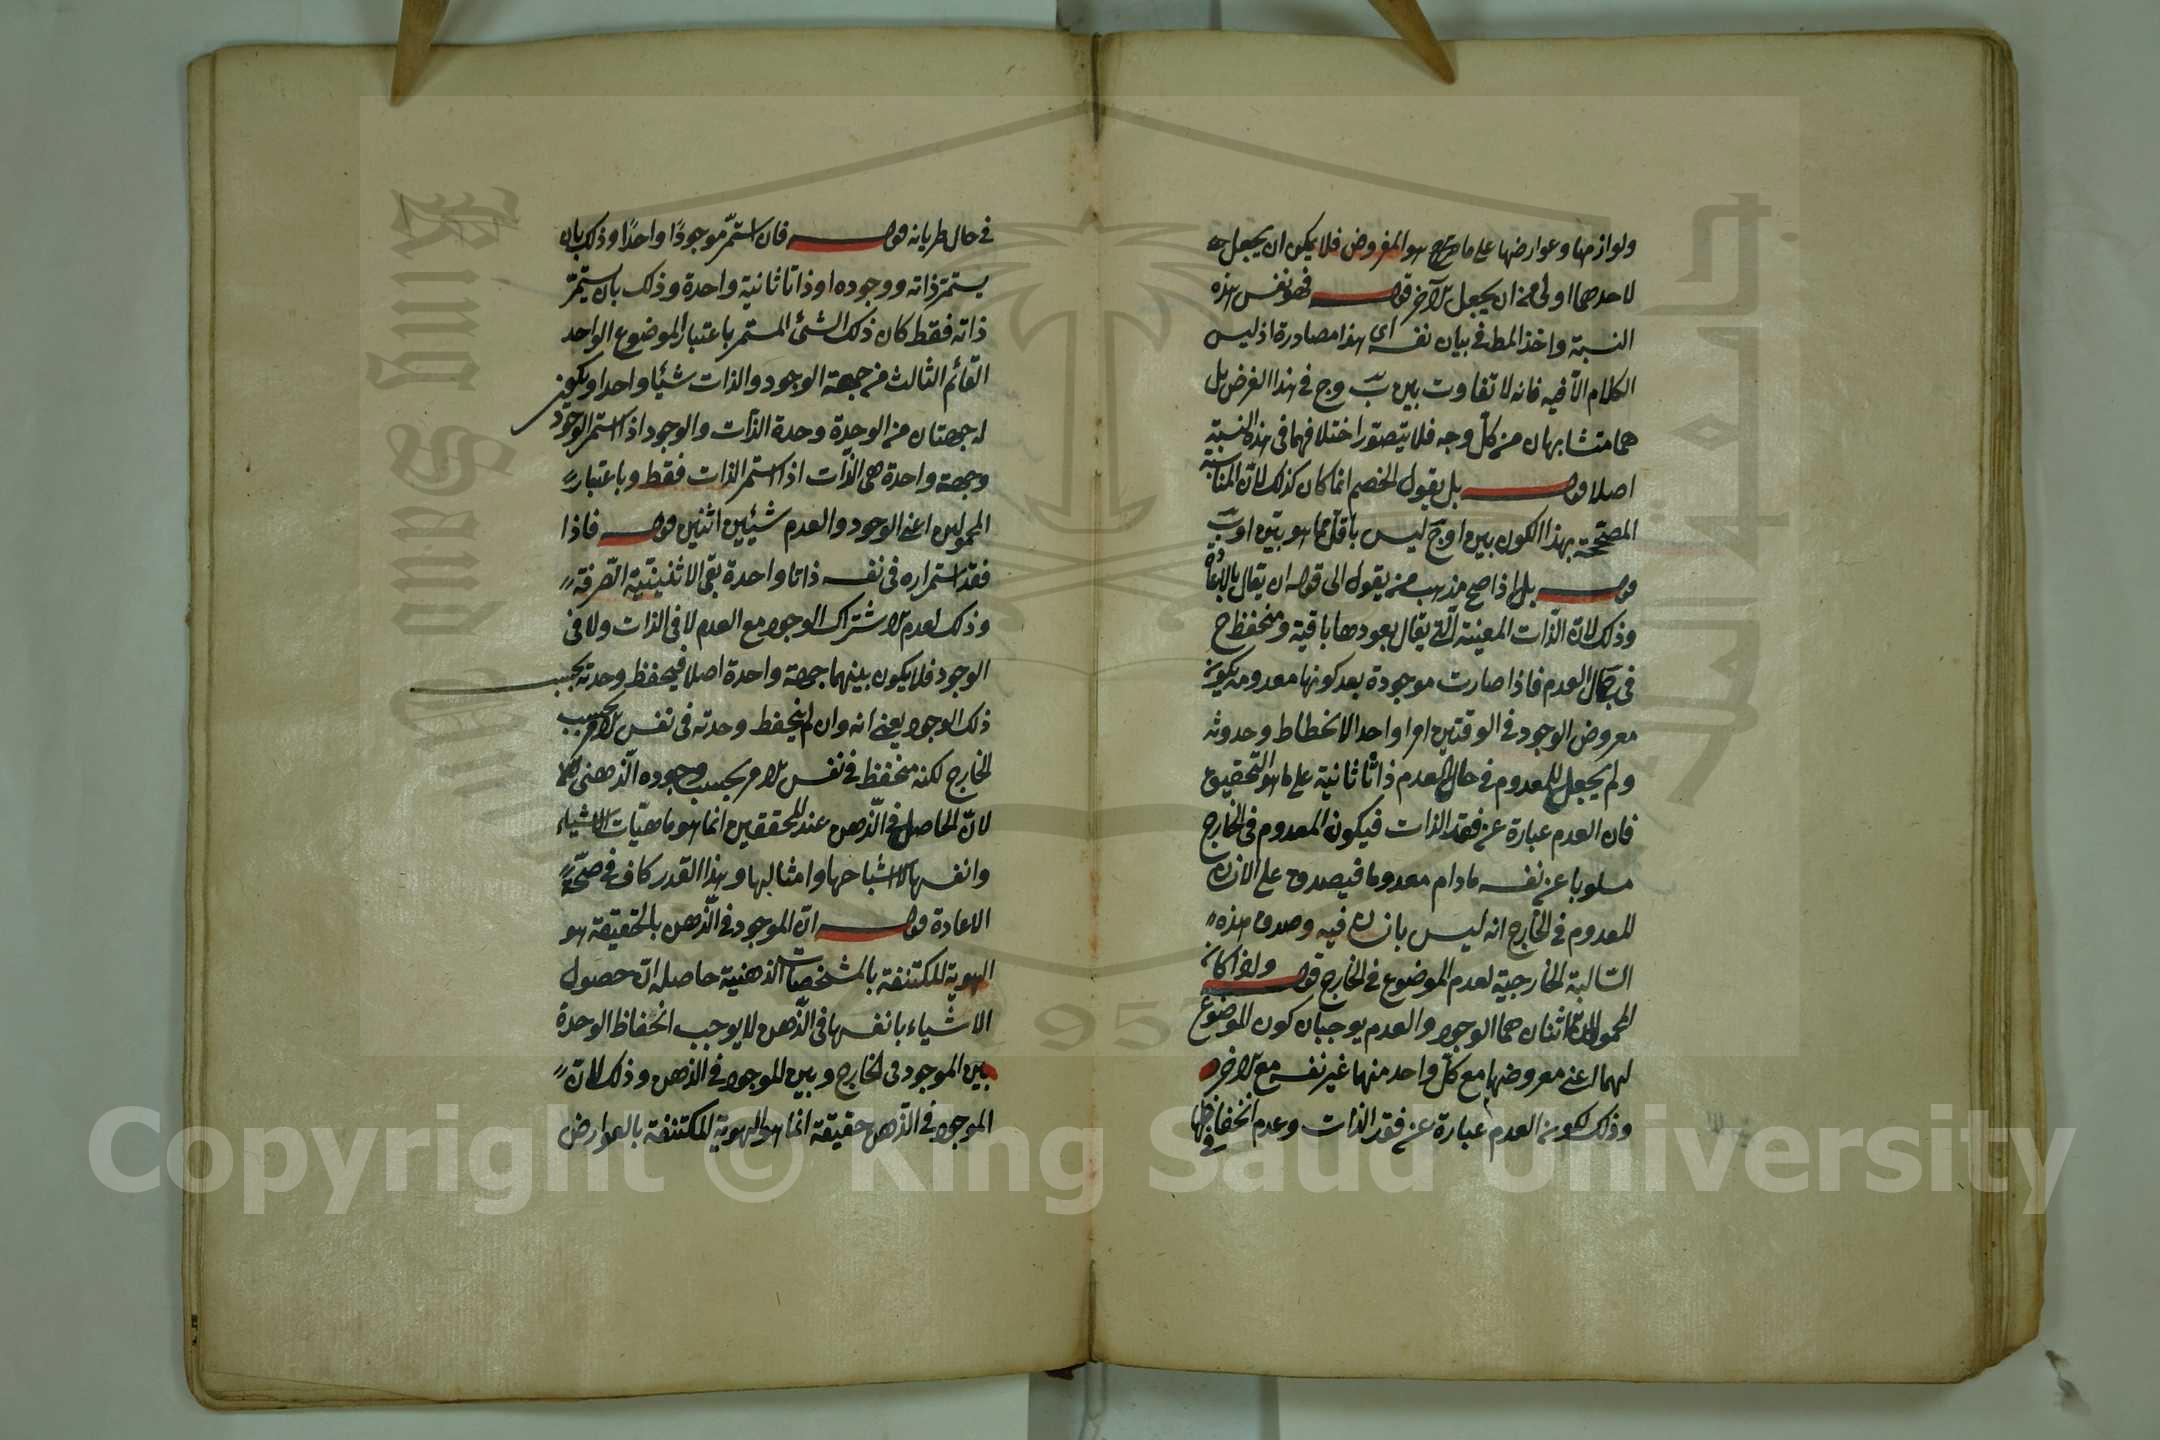 ولوازمها وعوارضها على ما صرح هو المفروض فلا يمكن ان يجعل جه
لاحدهما اولى من ان يجعل للآخر قوله فهو نفس هذه
النسبة واخذ المط في بيان نفسه اى هذا مصادرة اذ ليس
الكلام الا فيه فانه لا تفاوت بين ب وج في هذا الفرض بل
هما متشابهان من كل وجه فلا يتصور اختلافهما في هذه النسبة
اصلا قوله بل يقول الخصم انما كان كذلك لان المناسبة
المصححة بهذا الكون بين ا وج ليس باقل مما هو بين ا وب
قوله بل اذا صح مذهب من يقول الى قوله ان يقال بالاعادة
وذلك لان الذات المعينة التي يقال بعودها باقية ومنحفظ ح
في حال العدم فاذا صارت موجودة بعد كونها معدومة يكون
معروض الوجود في الوقتين امرا واحد الانخطاط وحدوثه
ولم يجعل للمعدوم في حال العدم ذاتا ثانية على ما هو التحقيق
فان العدم عبارة عن فقد الذات فيكون المعدوم في الخارج
مسلوبا عن نفسه ما دام معدوما فيصدق على الانسان
المعدوم في الخارج انه ليس بانسان فيه وصدق هذه
السالبة الخارجية لعدم الموضوع في الخارج قوله ولو كان
المحمولان اثنان هما الوجود والعدم يوجبان كون الموضوع
لهما اعني معروضها مع كل واحد منهما غير نفسه مع الآخر
وذلك لكون العدم عبارة عن فقد الذات وعدم انحفاظها
في
في حال طريانه قوله فان استمر موجودا واحدا وذلك بان
يستمر ذاته ووجوده او ذاتا ثانية واحدة وذلك بان يستمر
ذاته فقط كان ذلك الشئ المستمر باعتبار الموضوع الواحد
القائم الثالث من جهة الوجود والذات شيئا واحدا ويكون
له جهتان من الوحدة وحدة الذات والوجود اذا استمر الوجود
وجهة واحدة هي الذات اذا استمر الذات فقط وباعتبار
المحمولين اعني الوجود والعدم شيئين اثنين قوله فاذا
فقد استمراره في نفسه ذاتا واحدة بقي الاثنينية الصرفة
وذلك لعدم الاشتراك الوجود مع العدم لا في الذات ولا في
الوجود فلا يكون بينهما جهة واحدة اصلا فيحفظ وحدته بحسب
ذلك الوجود يعني انه وان لم ينحفظ وحدته في نفس الامر بحسب
الخارج لكنه منحفظ في نفس الامر بحسب وجوده الذهني كما
لان الحاصل في الذهن عند المحققين انما هو ماهيات الاشياء
وانفسها لا اشباحها وامثالها وهذا القدر كاف في صحة
الاعادة قوله ان الموجود في الذهن بالحقيقة هو
الهوية المكتنفة بالمشخصات الذهنية حاصله ان حصول
الاشياء بانفسها في الذهن لا يوجب انحفاظ الوحدة
بين الموجود في الخارج وبين الموجود في الذهن وذلك لان
الموجود في الذهن حقيقة انما هو الهوية المكتنفة بالعوارض
King Saud University
1957
Copyright © King Saud University